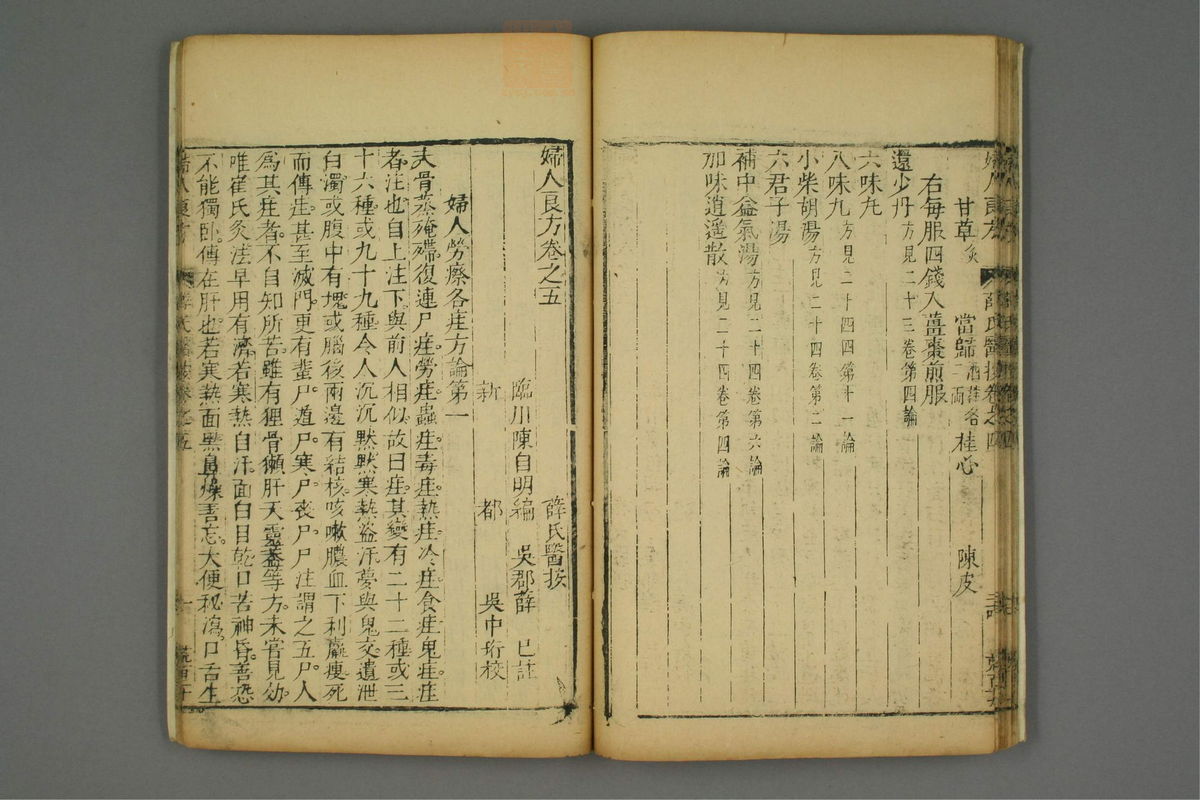 甘草炙 當歸酒拌各二兩 桂心 陳皮
右每服四錢入薑棗煎服
還少丹方見二十三卷第四論
六味丸
八味丸方見二十四四第十一論
小柴胡湯方見二十四卷第二論
六君子湯
補中益氣湯方見二十四卷第六論
加味逍遥散方見二十四卷第四論
婦人良方卷之五 薛氏醫按
臨川陳自明編 吳郡薛 巳註
新 都 吳中珩校
婦人勞瘵各疰方論第一
夫骨蒸殗殜復連尸疰勞疰蟲疰毒疰熱疰冷疰食疰鬼疰疰
者注也自上注下與前人相似故曰疰其變有二十二種或三
十六種或九十九種令人沉沉默默寒熱盜汗夢與鬼交遺泄
白濁或腹中有塊或腦後兩邊有結核咳嗽膿血下利羸瘦死
而傳疰甚至滅門更有蜚尸遁尸寒尸喪尸尸注謂之五尸人
爲其疰者不自知所苦雖有狸骨獺肝天靈蓋等方未嘗見効
唯崔氏灸法早用有濟若寒熱自汗面白目乾口苦神昏善恐
不能獨卧傳在肝也若寒熱面黑鼻燥善忘大便秘瀉口舌生
婦人良方 薛氏醫按卷之五